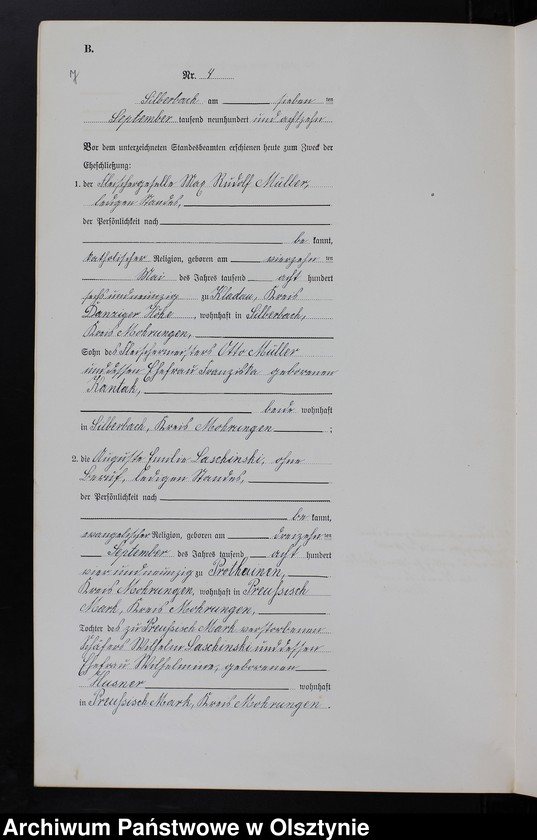 B.
Nr. 4
Silberbach am sieben ten
September tausend neunhundert und achtzehn
Vor dem unterzeichneten Standesbeamten erschienen heute zum Zweck der
Eheschließung:
1. der Fleischergeselle Max Rudolf Müller,
ledigen Standes,
der Persönlichkeit nach
be kannt,
katholischer Religion, geboren am vierzehn ten
Mai des Jahres tausend acht hundert
sechsundneunzig zu Kladau, Kreis
Danziger Höhe, wohnhaft in Silberbach,
Kreis Mohrungen,
Sohn des Fleischermeisters Otto Müller
und dessen Ehefrau Franziska geborenen
Kantak,
beide wohnhaft
in Silberbach, Kreis Mohrungen ;
2. die Auguste Emilie Laschinski, ohne
Beruf, ledigen Standes,
der Persönlichkeit nach
be kannt,
evangelischer Religion, geboren am dreizehn ten
September des Jahres tausend acht hundert
vierundneunzig zu Prothainen,
Kreis Mohrungen, wohnhaft in Preußisch
Mark, Kreis Mohrungen,
Tochter des zu Preußisch Mark verstorbenen
Schäfers Wilhelm Laschinski und dessen
Ehefrau Wilhelmine, geborenen
wohnhaft
in Preußisch Mark, Kreis Mohrungen.
Archiwum Państwowe w Olsztynie